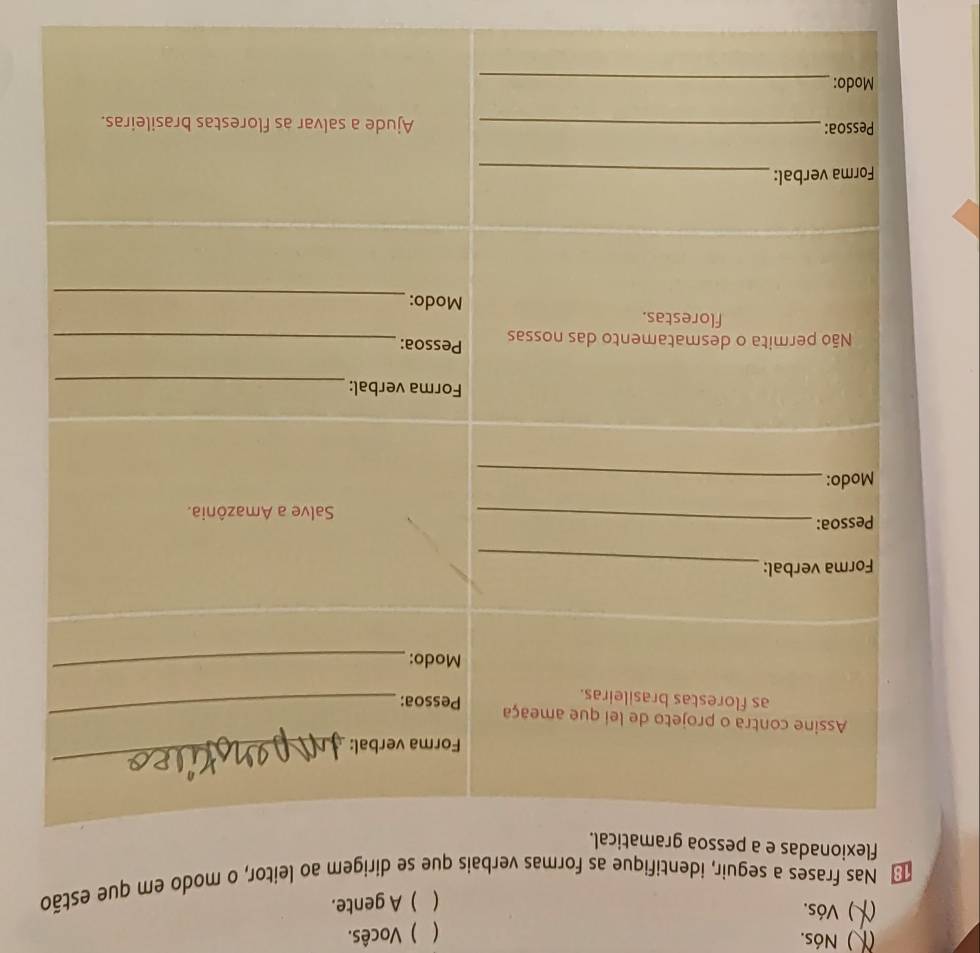 (X) Nós.
( ) Vocês.
(X) Vós.
( ) A gente.
18 Nas frases a seguir, identifique as formas verbais que se dirigem ao leitor, o modo em que estão
flexionadas e a pessoa gramatical.
Assine contra o projeto de lei que ameaça
as florestas brasileiras.
Forma verbal: imperativo
Pessoa:
Modo:
Forma verbal:
Pessoa:
Modo:
Salve a Amazônia.
Não permita o desmatamento das nossas
florestas.
Forma verbal:
Pessoa:
Modo:
Forma verbal:
Pessoa:
Modo:
Ajude a salvar as florestas brasileiras.